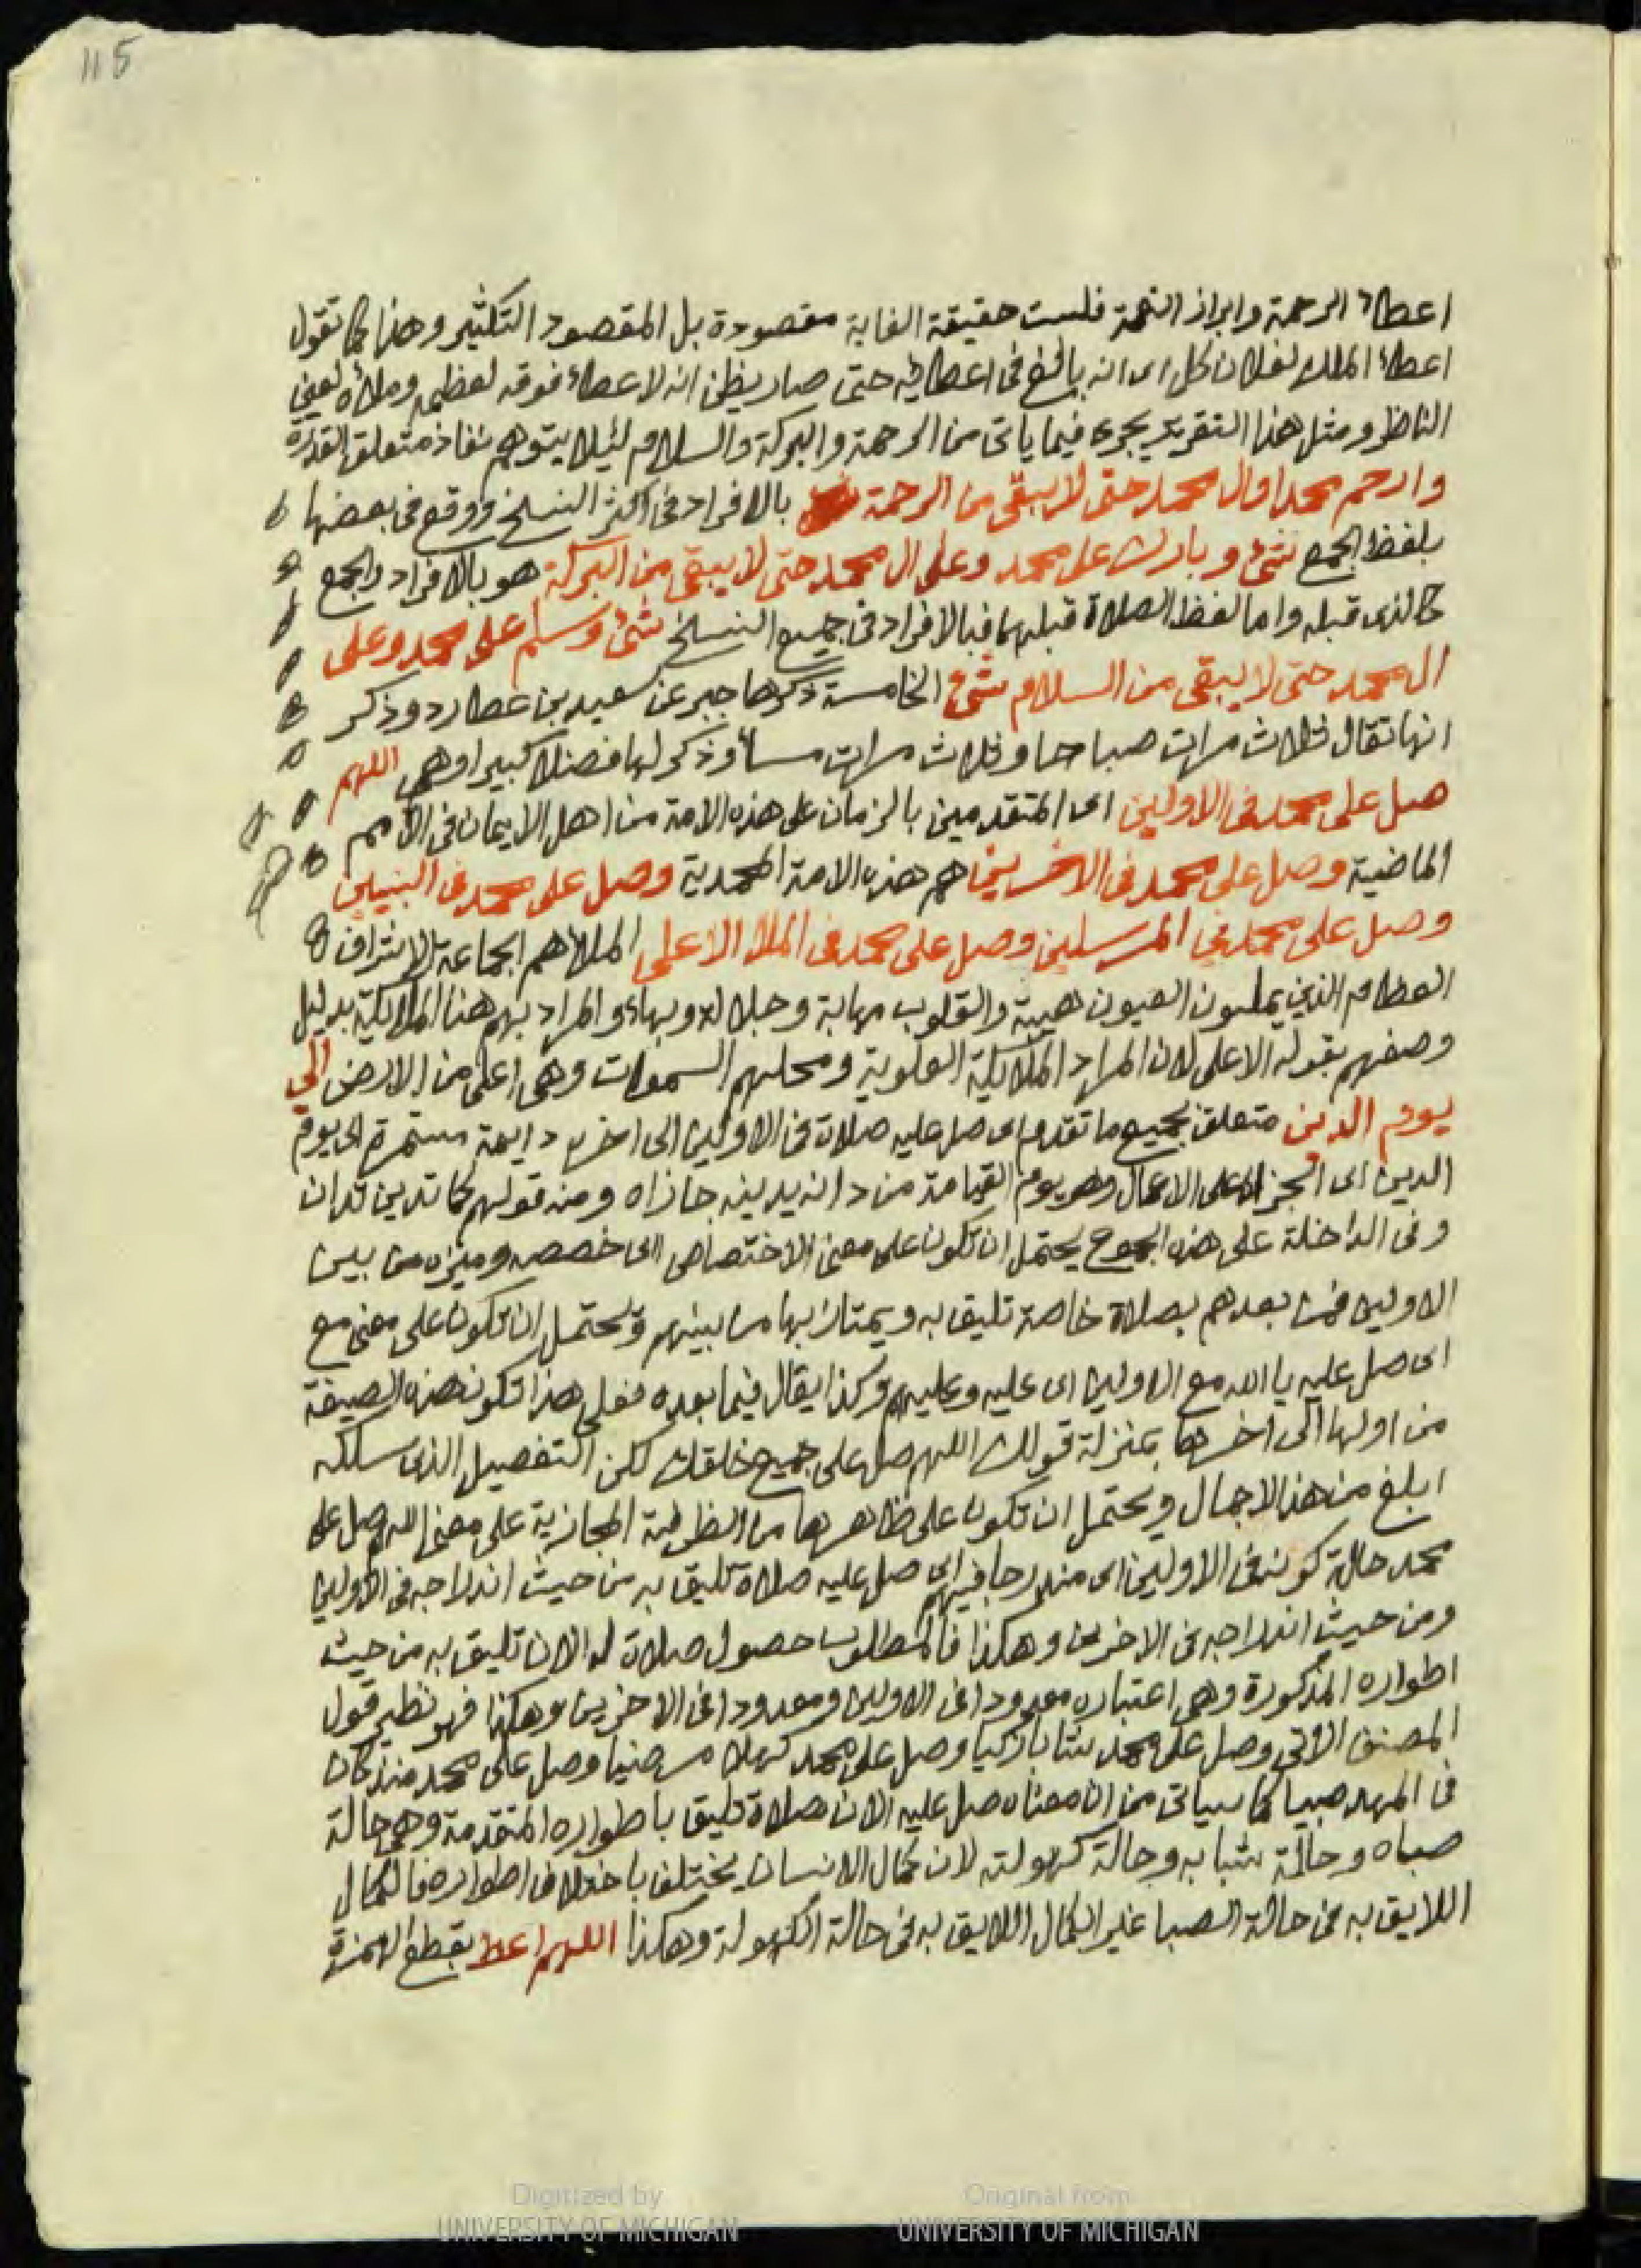 115
اعطاء الرحمة وابراز النعمة فلست حقيقة الغاية مقصودة بل المقصود التكثير وهذا كما تقول
اعطا الملك لفلان كل اى انه بالغ فى اعطايه حتى صار يظن انه لا عطا فوقه لعظمه وملأه لعين
الناظر ومثل هذا التقرير يجرى فيما ياتى من الرحمة والبركة والسلام ليلا يتوهم نفاذ متعلق القدرة
وارحم محمدا وال محمد حتى لا يبقى من الرحمة بالافراد فى اكثر النسخ ووقع فى بعضها
بلفظ الجمع شئ وبارك على محمد وعلى ال محمد حتى لا يبقى من البركة هو بالافراد والجمع
كالذى قبله واما لفظ الصلاة قبلهما فبالافراد فى جميع النسخ شئ وسلم على محمد وعلى
ال محمد حتى لا يبقى من السلام شئ الخامسة ذكرها جبر عن سعيد بن عطارد وذكر
انها تقال ثلاث مرات صباحا وثلاث مرات مسأ وذكر لها فضلا كبيرا وهى اللهم
صل على محمد فى الاولين اى المتقدمين بالزمان على هذه الامة من اهل الايمان فى الامم
الماضية وصل على محمد فى الاخرين هم هذه الامة المحمدية وصل على محمد فى النبيين
وصل على محمد فى المرسلين وصل على محمد فى الملا الاعلى الملا هم الجماعة الاشراف
العظام الذين يملون العيون هيبة والقلوب مهابة وجلالة وبهاء والمراد بهم هنا الملايكة بدليل
وصفهم بقوله الاعلى لان المراد الملايكة العلوية ومحلهم السموات وهى اعلى من الارض الي
يوم الدين متعلق بجميع ما تقدم اى صل عليه صلاة فى الاولين الى اخره دايمة مستمرة الى يوم
الدين اى الجزاء على الاعمال وهو يوم القيامة من دانه يدينه جازاه ومنه قولهم كما تدين تدان
وفى الداخلة على هذه الجموع يحتمل ان تكون على معنى الاختصاص اى خصصه وميزه من بين
الاولين فمن بعدهم بصلاة خاصة تليق به ويمتاز بها من بينهم ويحتمل ان تكون على معنى مع
اى صل عليه يا الله مع الاولين اى عليه وعليهم وكذا يقال فيما بعده فعلى هذا تكون هذه الصيغة
من اولها الى اخرها بمنزلة قولك اللهم صل على جميع خلقك لكن التفصيل الذى سلكه
ابلغ من هذا الاجمال ويحتمل ان تكون على ظاهرها من الظرفية المجازية على معنى اللهم صل على
محمد حالة كونه فى الاولين اى مندرجا فيهم اى صل عليه صلاة تليق به من حيث اندراجه فى الاولين
ومن حيث اندراجه فى الاخرين وهكذا فالمطلوب حصول صلاة له الان تليق به من حيث
اطواره المذكورة وهى اعتباره معدودا فى الاولين ومعدودا فى الاخرين وهكذا فهو نظير قول
المصنف الاتى وصل على محمد شابا زكيا وصل على محمد كهلا مرضيا وصل على محمد منذ كان
فى المهد صبيا كما سياتى من ان معناه صل عليه الان صلاة تليق باطواره المتقدمة وهى حالة
صباه وحالة شبابه وحالة كهولته لان كمال الانسان يختلف باختلاف اطواره فالكمال
اللايق به فى حالة الصبا غير الكمال اللايق به فى حالة الكهولة وهكذا اللهم اعط بقطع الهمزة
Digitized by UNIVERSITY OF MICHIGAN
Original from UNIVERSITY OF MICHIGAN